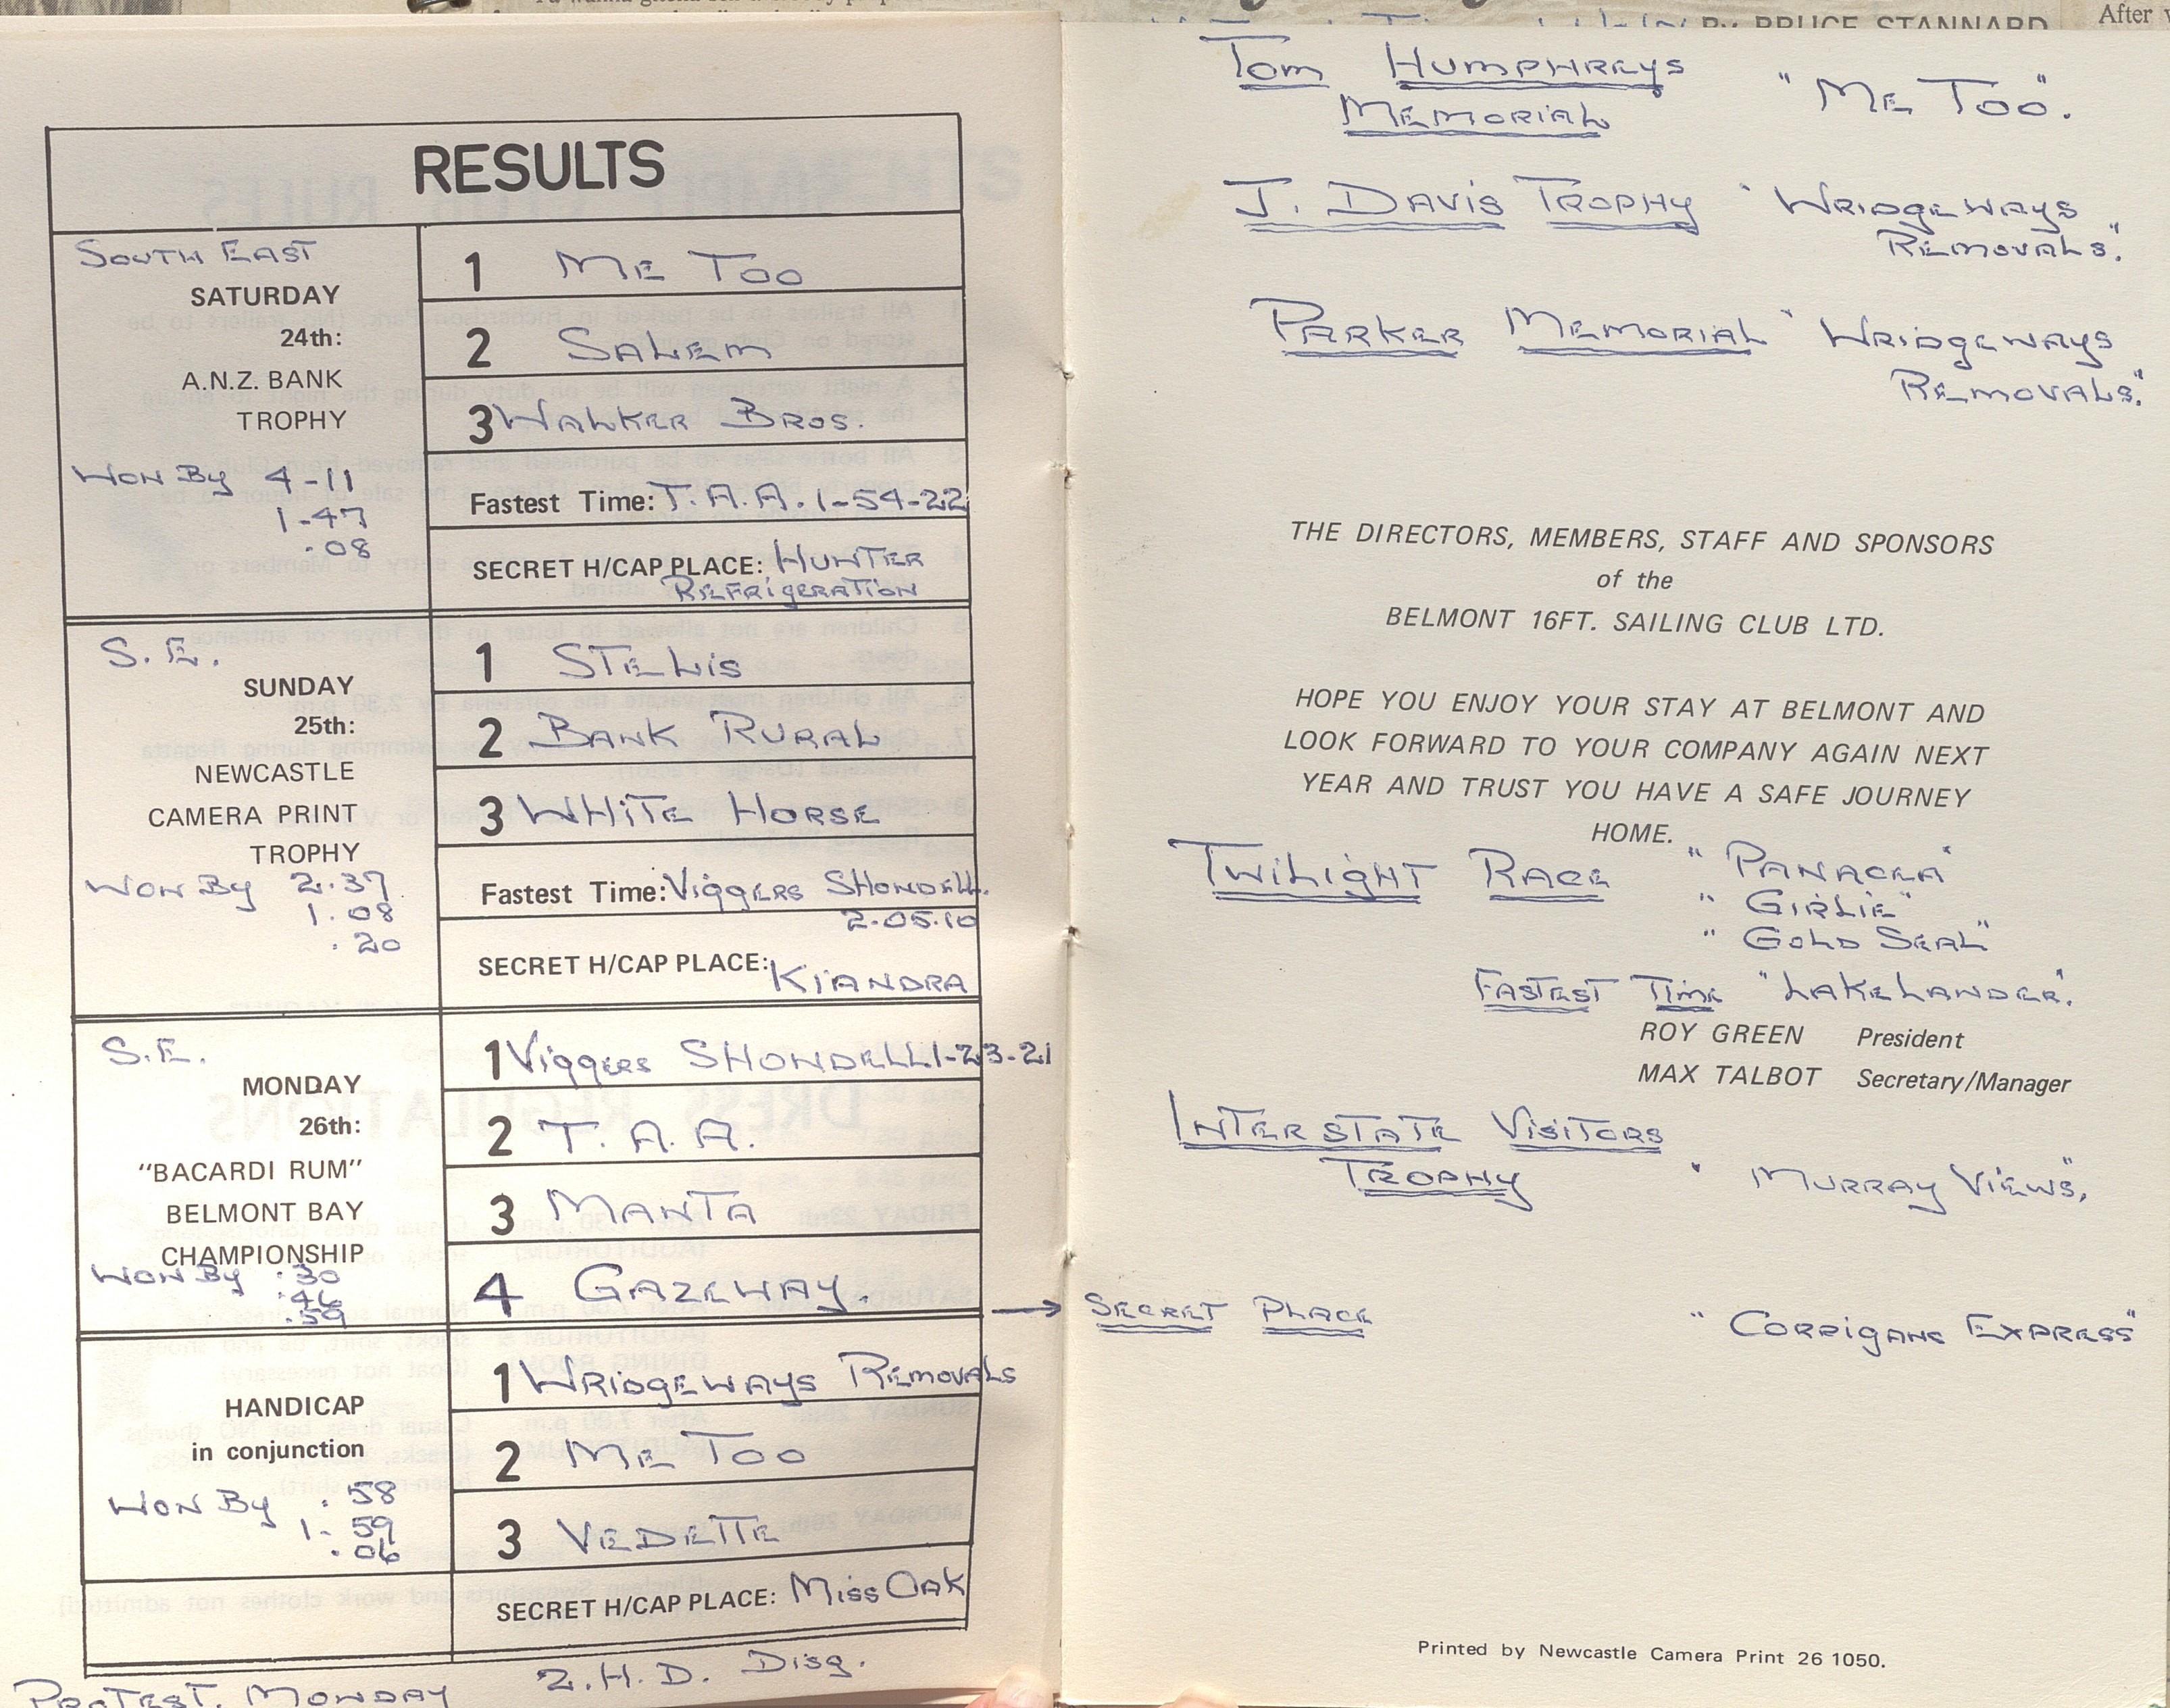 BY BRUCE STANNARD
After
RESULTS
SOUTH EAST
SATURDAY
24th:
A.N.Z. BANK
TROPHY
WON BY 4-11
1-47
.08
1 ME TOO
2 SALEM
3 WALKER BROS.
Fastest Time: T.A.A. 1-54-22
SECRET H/CAP PLACE: HUNTER
REFRIGERATION
S.E.
SUNDAY
25th:
NEWCASTLE
CAMERA PRINT
TROPHY
WON BY 2.37
1.08
.20
1 STELIS
2 BANK RURAL
3 WHITE HORSE
Fastest Time: VIGGERS SHONDELL.
2.05.10
SECRET H/CAP PLACE: KIANDRA
S.E.
MONDAY
26th:
"BACARDI RUM"
BELMONT BAY
CHAMPIONSHIP
WON BY .30
.46
.59
1 VIGGERS SHONDELL 1-23-21
2 T.A.A.
3 MANTA
4 GAZEWAY.
HANDICAP
in conjunction
WON BY .58
1-59
.06
1 WRIDGEWAYS REMOVALS
2 ME TOO
3 VEDETTE
SECRET H/CAP PLACE: MISS OAK
PROTEST. MONDAY 2.H.D. DISQ.
TOM HUMPHREYS
MEMORIAL "ME TOO".
J. DAVIS TROPHY "WRIDGEWAYS
REMOVALS".
PARKER MEMORIAL "WRIDGEWAYS
REMOVALS".
THE DIRECTORS, MEMBERS, STAFF AND SPONSORS
of the
BELMONT 16FT. SAILING CLUB LTD.
HOPE YOU ENJOY YOUR STAY AT BELMONT AND
LOOK FORWARD TO YOUR COMPANY AGAIN NEXT
YEAR AND TRUST YOU HAVE A SAFE JOURNEY
HOME.
TWILIGHT RACE "PANACEA"
"GIRLIE"
"GOLD SEAL"
FASTEST TIME "LAKELANDER".
ROY GREEN President
MAX TALBOT Secretary/Manager
INTERSTATE VISITORS
TROPHY "MURRAY VIEWS".
→ SECRET PLACE "CORRIGANS EXPRESS"
Printed by Newcastle Camera Print 26 1050.